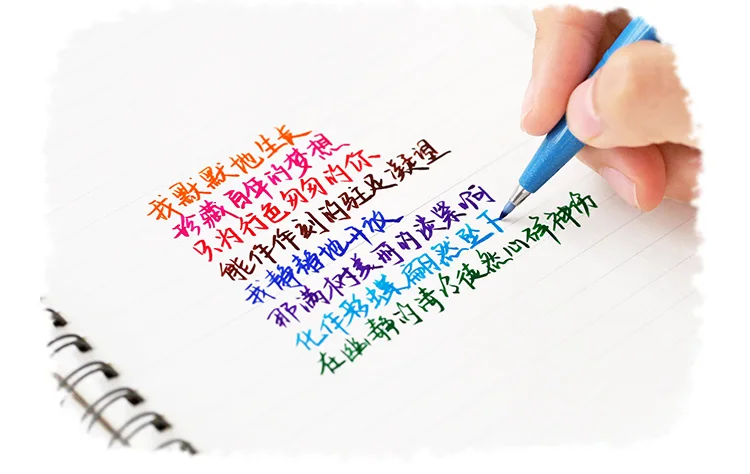 我默默地生长
珍藏自年的梦想
只为行色匆匆的你
能作片刻的驻足凝望
我静静地开放
那满树美丽的淡紫啊
化作彩蝶翩然坠下
在幽静的清冷徒然心碎神伤